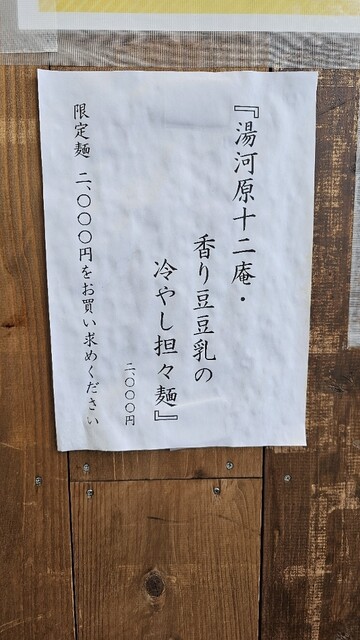 『湯河原十二庵・
香り豆豆乳の
冷やし担々麺』
二、〇〇〇円
限定麺 二、〇〇〇円をお買い求めください